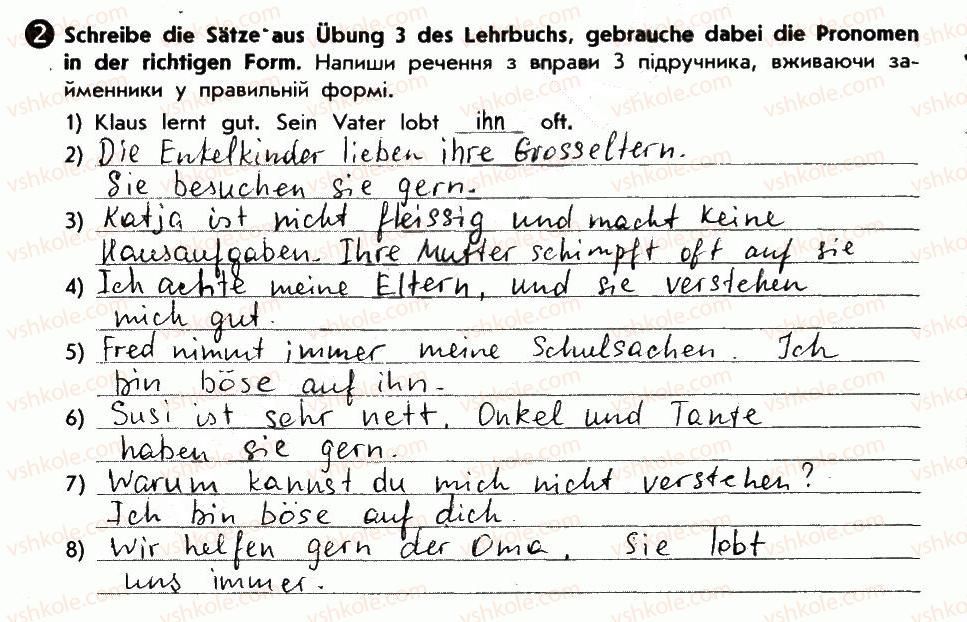 2 Schreibe die Sätze aus Übung 3 des Lehrbuchs, gebrauche dabei die Pronomen
in der richtigen Form. Напиши речення з вправи 3 підручника, вживаючи за-
йменники у правильній формі.
1) Klaus lernt gut. Sein Vater lobt ihn oft.
2) Die Enkelkinder lieben ihre Grosseltern.
Sie besuchen sie gern.
3) Katja ist nicht fleissig und macht keine
Hausaufgaben. Ihre Mutter schimpft oft auf sie
4) Ich achte meine Eltern, und sie verstehen
mich gut.
5) Fred nimmt immer meine Schulsachen. Ich
bin böse auf ihn.
6) Susi ist sehr nett. Onkel und Tante
haben sie gern.
7) Warum kannst du mich nicht verstehen?
Ich bin böse auf dich.
8) Wir helfen gern der Oma. Sie lobt
uns immer.
vshkole.com